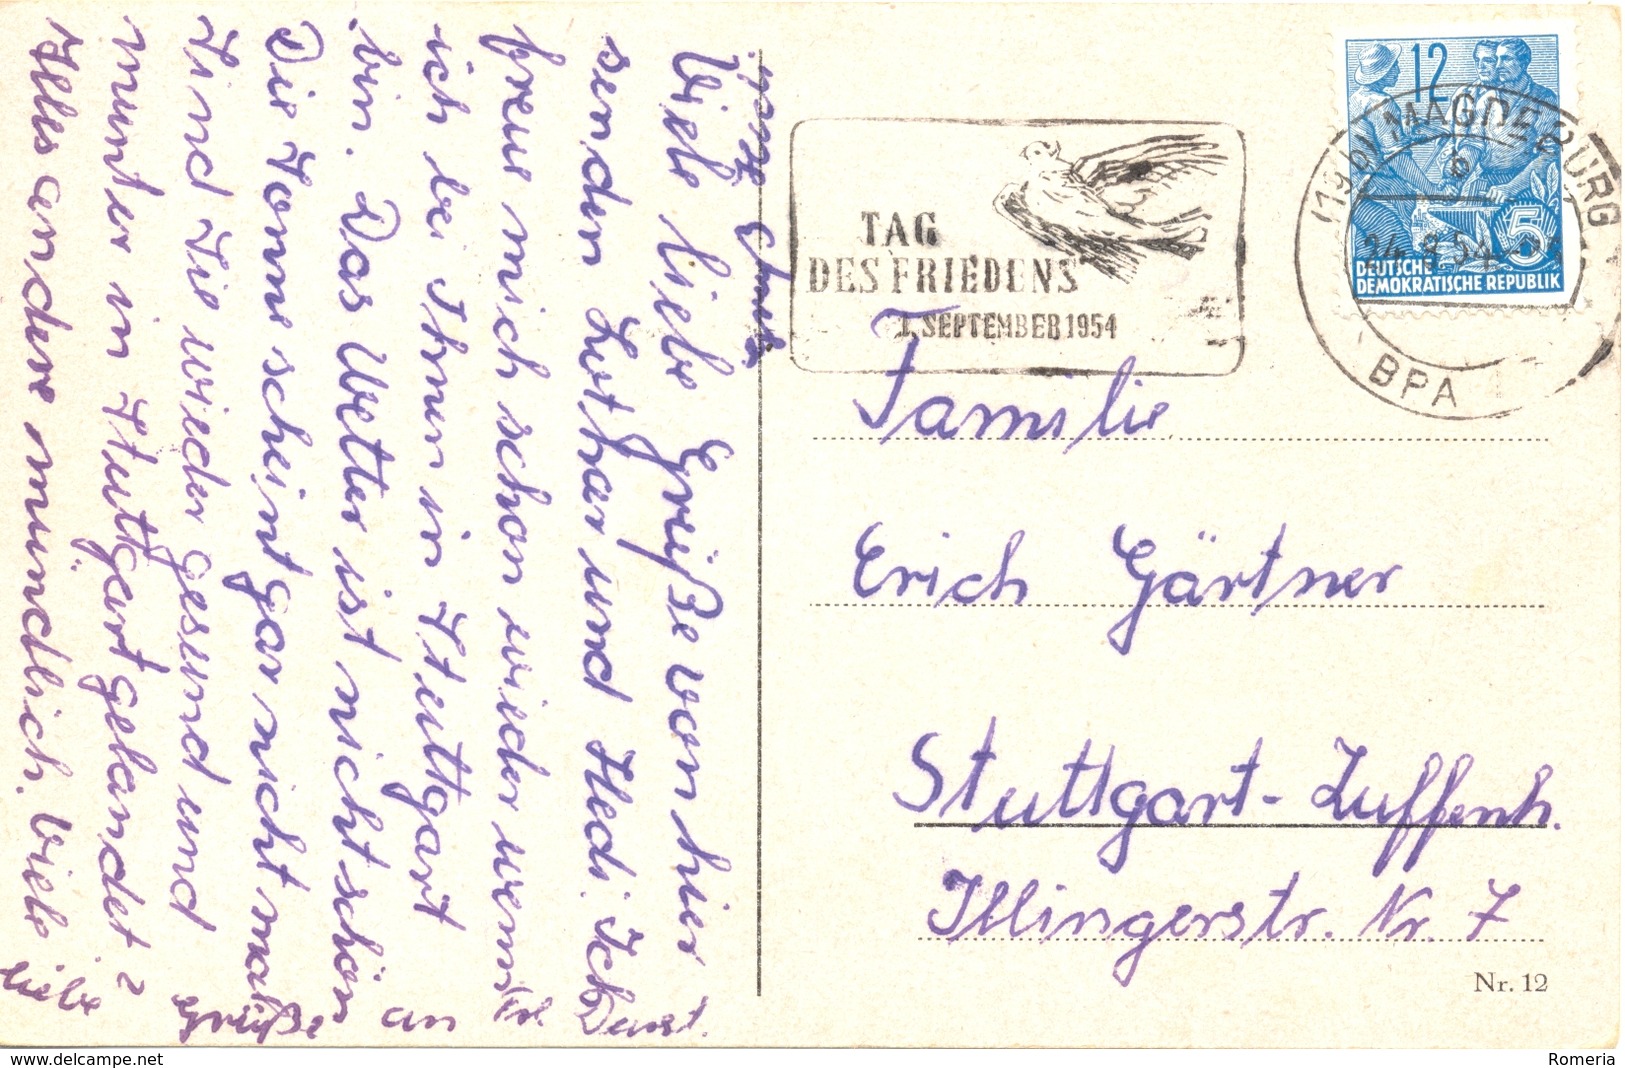 Viele liebe Grüße von hier
senden Lothar und Hedi. Ich
freue mich schon wieder wenn
ich bei Ihnen in Stuttgart
bin. Das Wetter ist nicht schön
Die Sonne scheint gar nicht mal
Sind Sie wieder gesund und
munter in Stuttgart gelandet?
Alles andere mündlich. Viele
liebe Grüße an
TAG
DES FRIEDENS
1. SEPTEMBER 1954
12
DEUTSCHE
DEMOKRATISCHE REPUBLIK
5
(19b) MAGDEBURG
b
BPA
Familie
Erich Gärtner
Stuttgart-Zuffenh.
Illingerstr. Nr. 7
Nr. 12
delcampe.net
Romeria